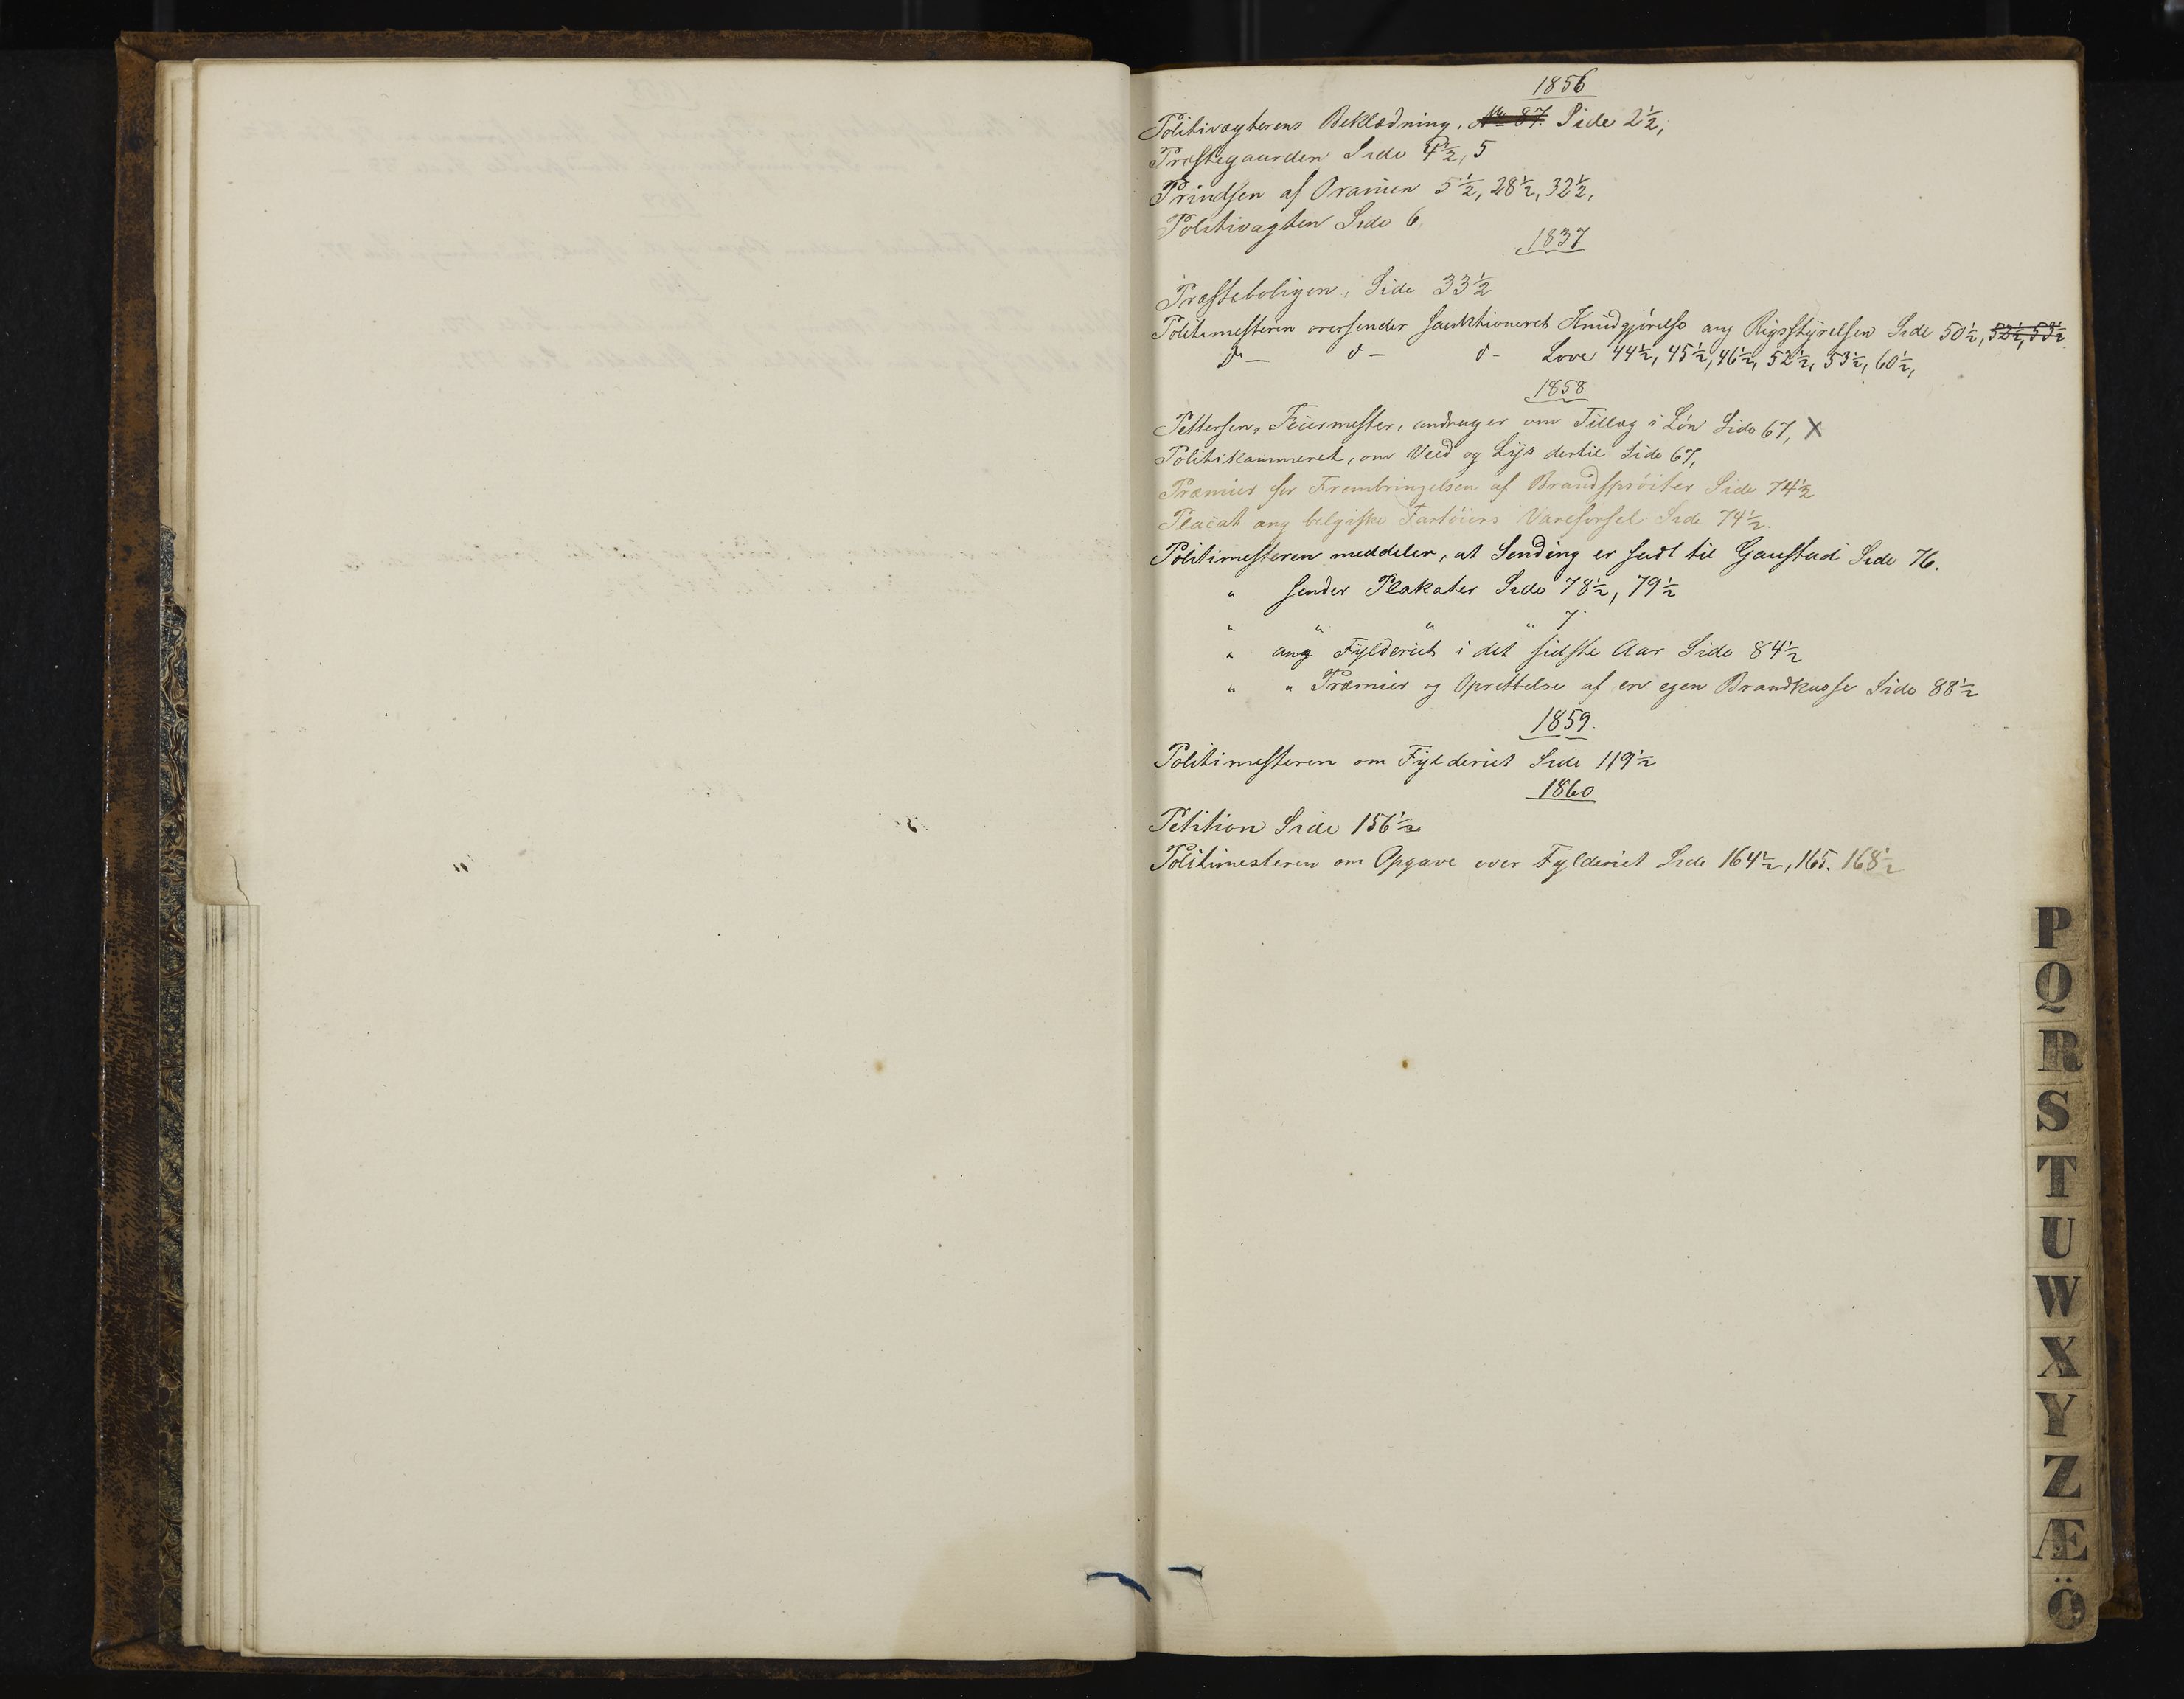 1856
Politivægterens Beklædning, No 87. Side 2½,
Præstegaarden Side 4½, 5
Prindsen af Oranien 5½, 28½, 32½,
Politivagten Side 6,
1837
Præsteboligen, Side 33½
Politimesteren oversender sanktioneret Kundgjørelse ang Rigsstyrelsen Side 50½, 52½, 53½
do — do — do - Love 44½, 45½, 46½, 52½, 53½, 60½,
1858
Pettersen, Feiermester, andrager om Tillæg i Løn Side 67, X
Politikammeret, om Veed og Lys dertil Side 67,
Præmier for Frembringelsen af Brandsprøiter Side 74½
Placat ang belgiske Fartøiers Vareførsel Side 74½.
Politimesteren meddeler, at Sending er sendt til Gaustad Side 76.
" sender Plakater Side 78½, 79½
" " " " 7
" ang Fylderiet i det sidste Aar Side 84½
" " Præmier og Oprettelse af en egen Brandkasse Side 88½
1859.
Politimesteren om Fylderiet Side 119½
1860
Petition Side 156½
Politimesteren om Opgave over Fylderiet Side 164½, 165. 168½
P
Q
R
S
T
U
W
X
Y
Z
Æ
Ö